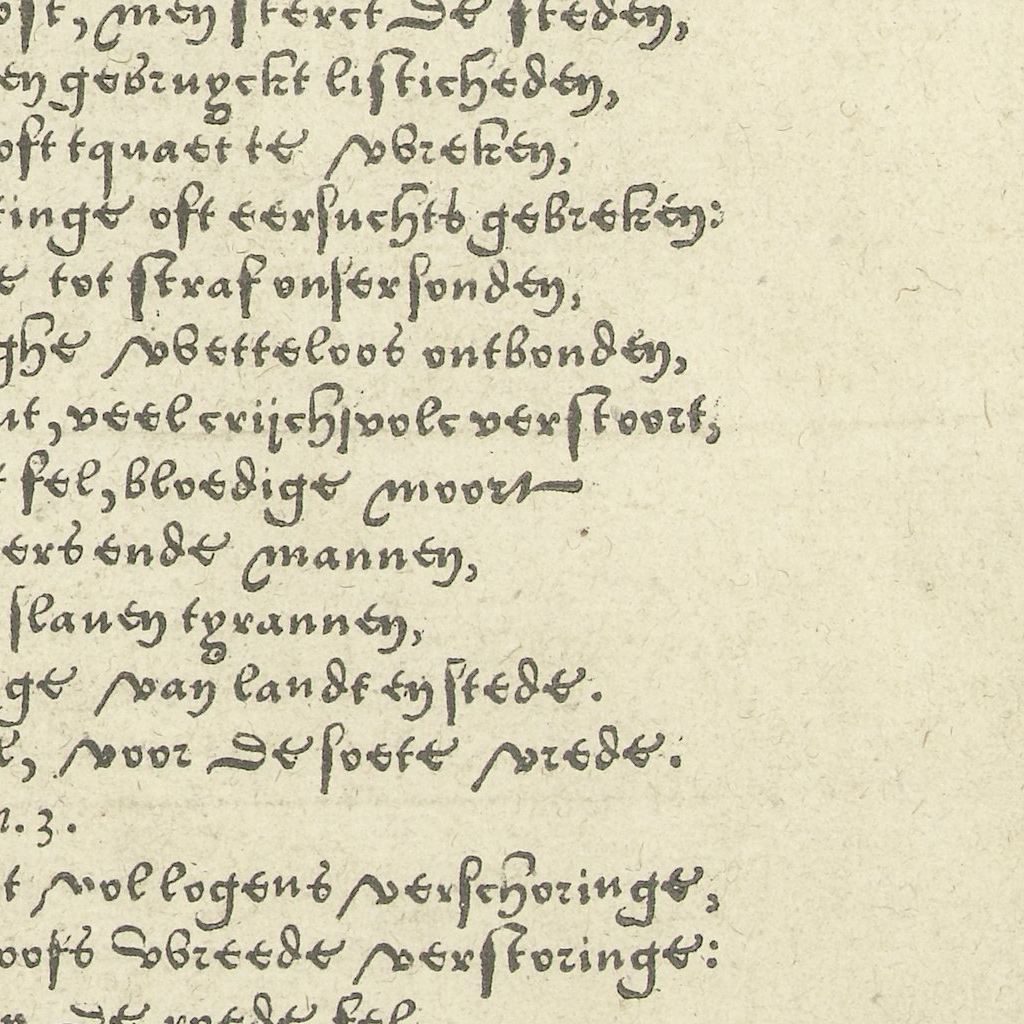 ost, men sterct de steden,
en gebruyckt listicheden,
oft tquaet te wreken,
tinge oft eersuchts gebreken:
e tot straf onser sonden,
ghe wetteloos ontbonden,
nt, veel crijchsvolc verstoort,
t fel, bloedige moort
ers ende mannen,
slauen tyrannen,
ge van landt en stede.
l, voor de soete vrede.
r. 3.
t vol logens verschoringe,
oofs wreede verstoringe:
de roede fel